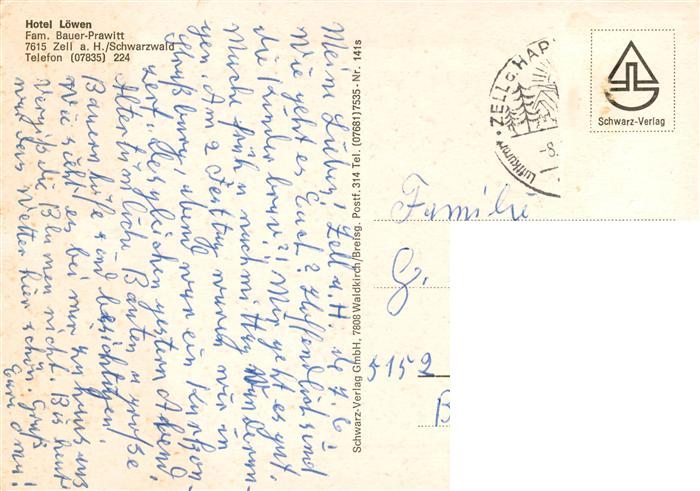 Hotel Löwen
Fam. Bauer-Prawitt
7615 Zell a. H./Schwarzwald
Telefon (07835) 224
Meine Lieben! Zell a. H. de 7. 6
Wie geht es Euch? Hoffendlich sind
die Kinder brav?! Mir geht es gut.
Mache früh u nachmittag Wanderun-
gen. Am 2 Festtag waren wir in
Straßburg, abend war ein Kurkon-
zert. Desgleichen gestern Abend
Altertümliche Bauten u große
Bauern höfe sind besichtigen.
Wie sieht es bei mir zu haus aus
Vergiß die Blumen nicht. Bis heute
war das Wetter hier schön. Gruß
Eure
Schwarz-Verlag GmbH, 7808 Waldkirch/Breisg. Postf. 314 Tel. (07681)7535 - Nr. 141s
ZELL a. HAR
Luftkurort
-8.
Schwarz-Verlag
Familie
G.
5152
B